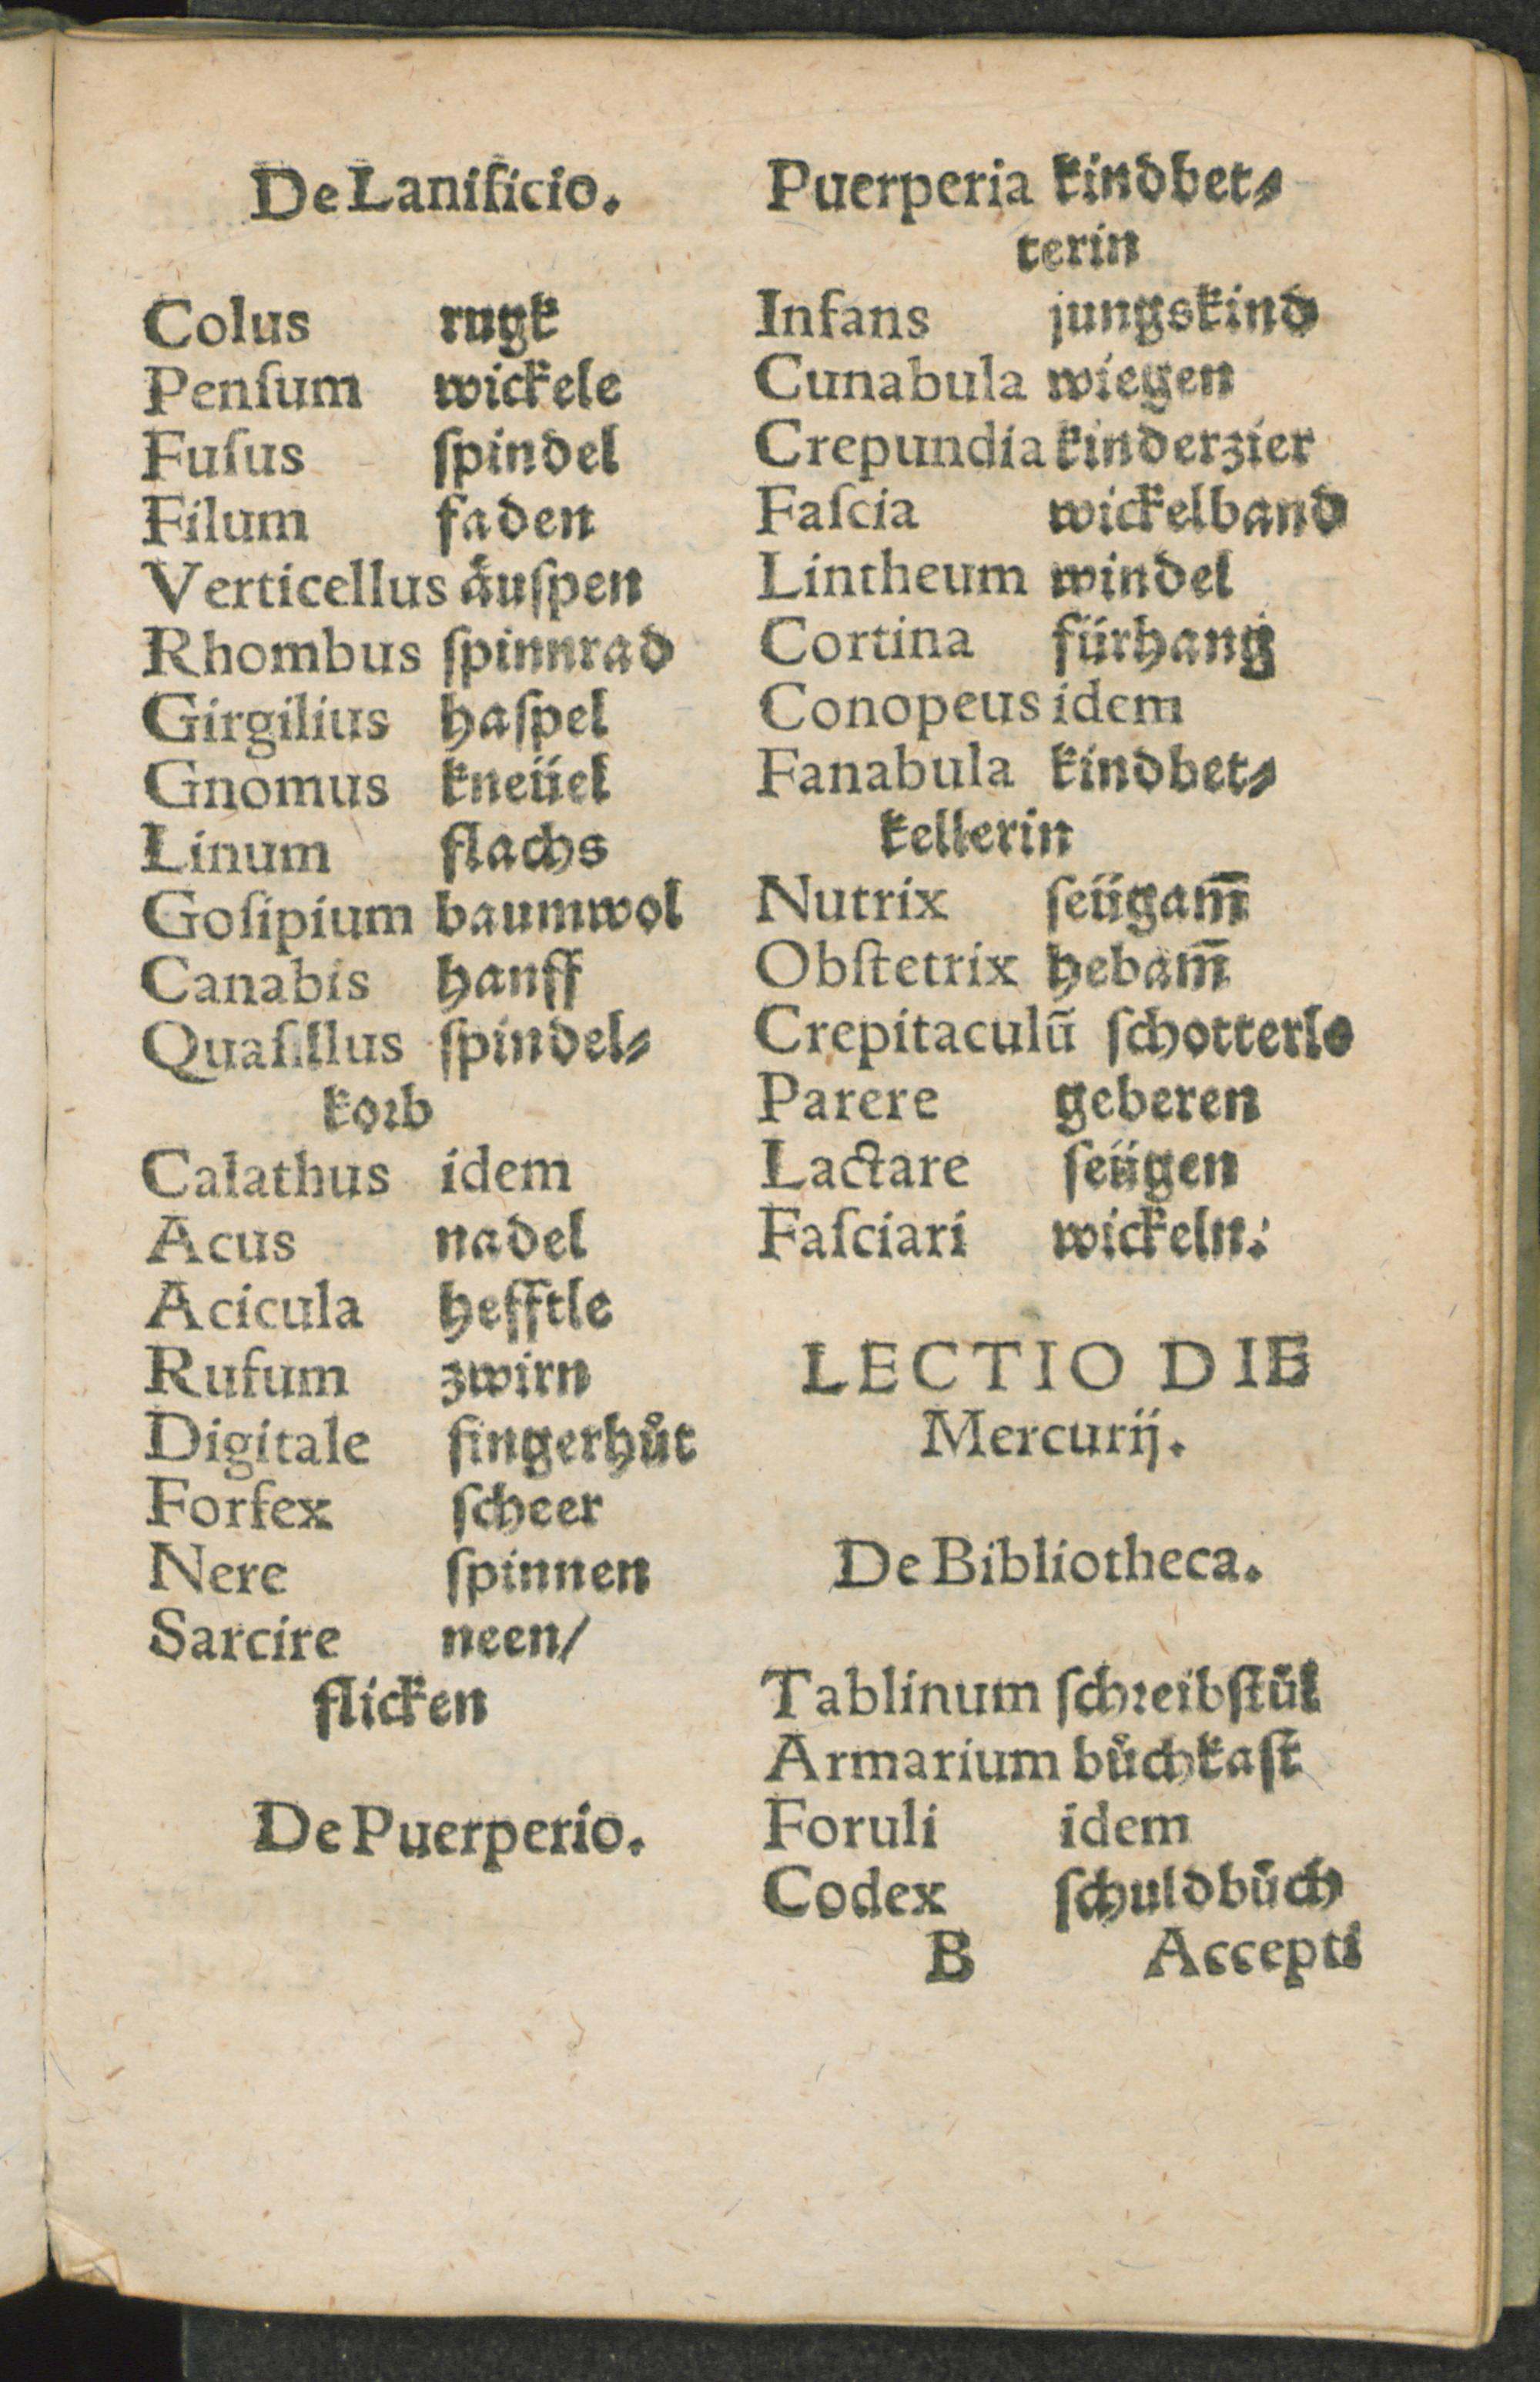 De Lanificio.
Colus rugk
Penſum wickele
Fuſus ſpindel
Filum faden
Verticellus äuſpen
Rhombus ſpinnrad
Girgilius haſpel
Gnomus kneüel
Linum flachs
Goſipium baumwol
Canabis hanff
Quaſillus ſpindel⸗
korb
Calathus idem
Acus nadel
Acicula hefftle
Rufum zwirn
Digitale fingerhůt
Forfex ſcheer
Nere ſpinnen
Sarcire neen/
flicken
De Puerperio.
Puerperia kindbet⸗
terin
Infans jungskind
Cunabula wiegen
Crepundia kinderzier
Faſcia wickelband
Lintheum windel
Cortina fürhang
Conopeus idem
Fanabula kindbet⸗
kellerin
Nutrix ſeügam̄
Obſtetrix hebam̄
Crepitaculū ſchotterle
Parere geberen
Lactare ſeügen
Faſciari wickeln.
LECTIO DIE
Mercurij.
De Bibliotheca.
Tablinum ſchreibſtül
Armarium bůchkaſt
Foruli idem
Codex ſchuldbůch
B Accepti